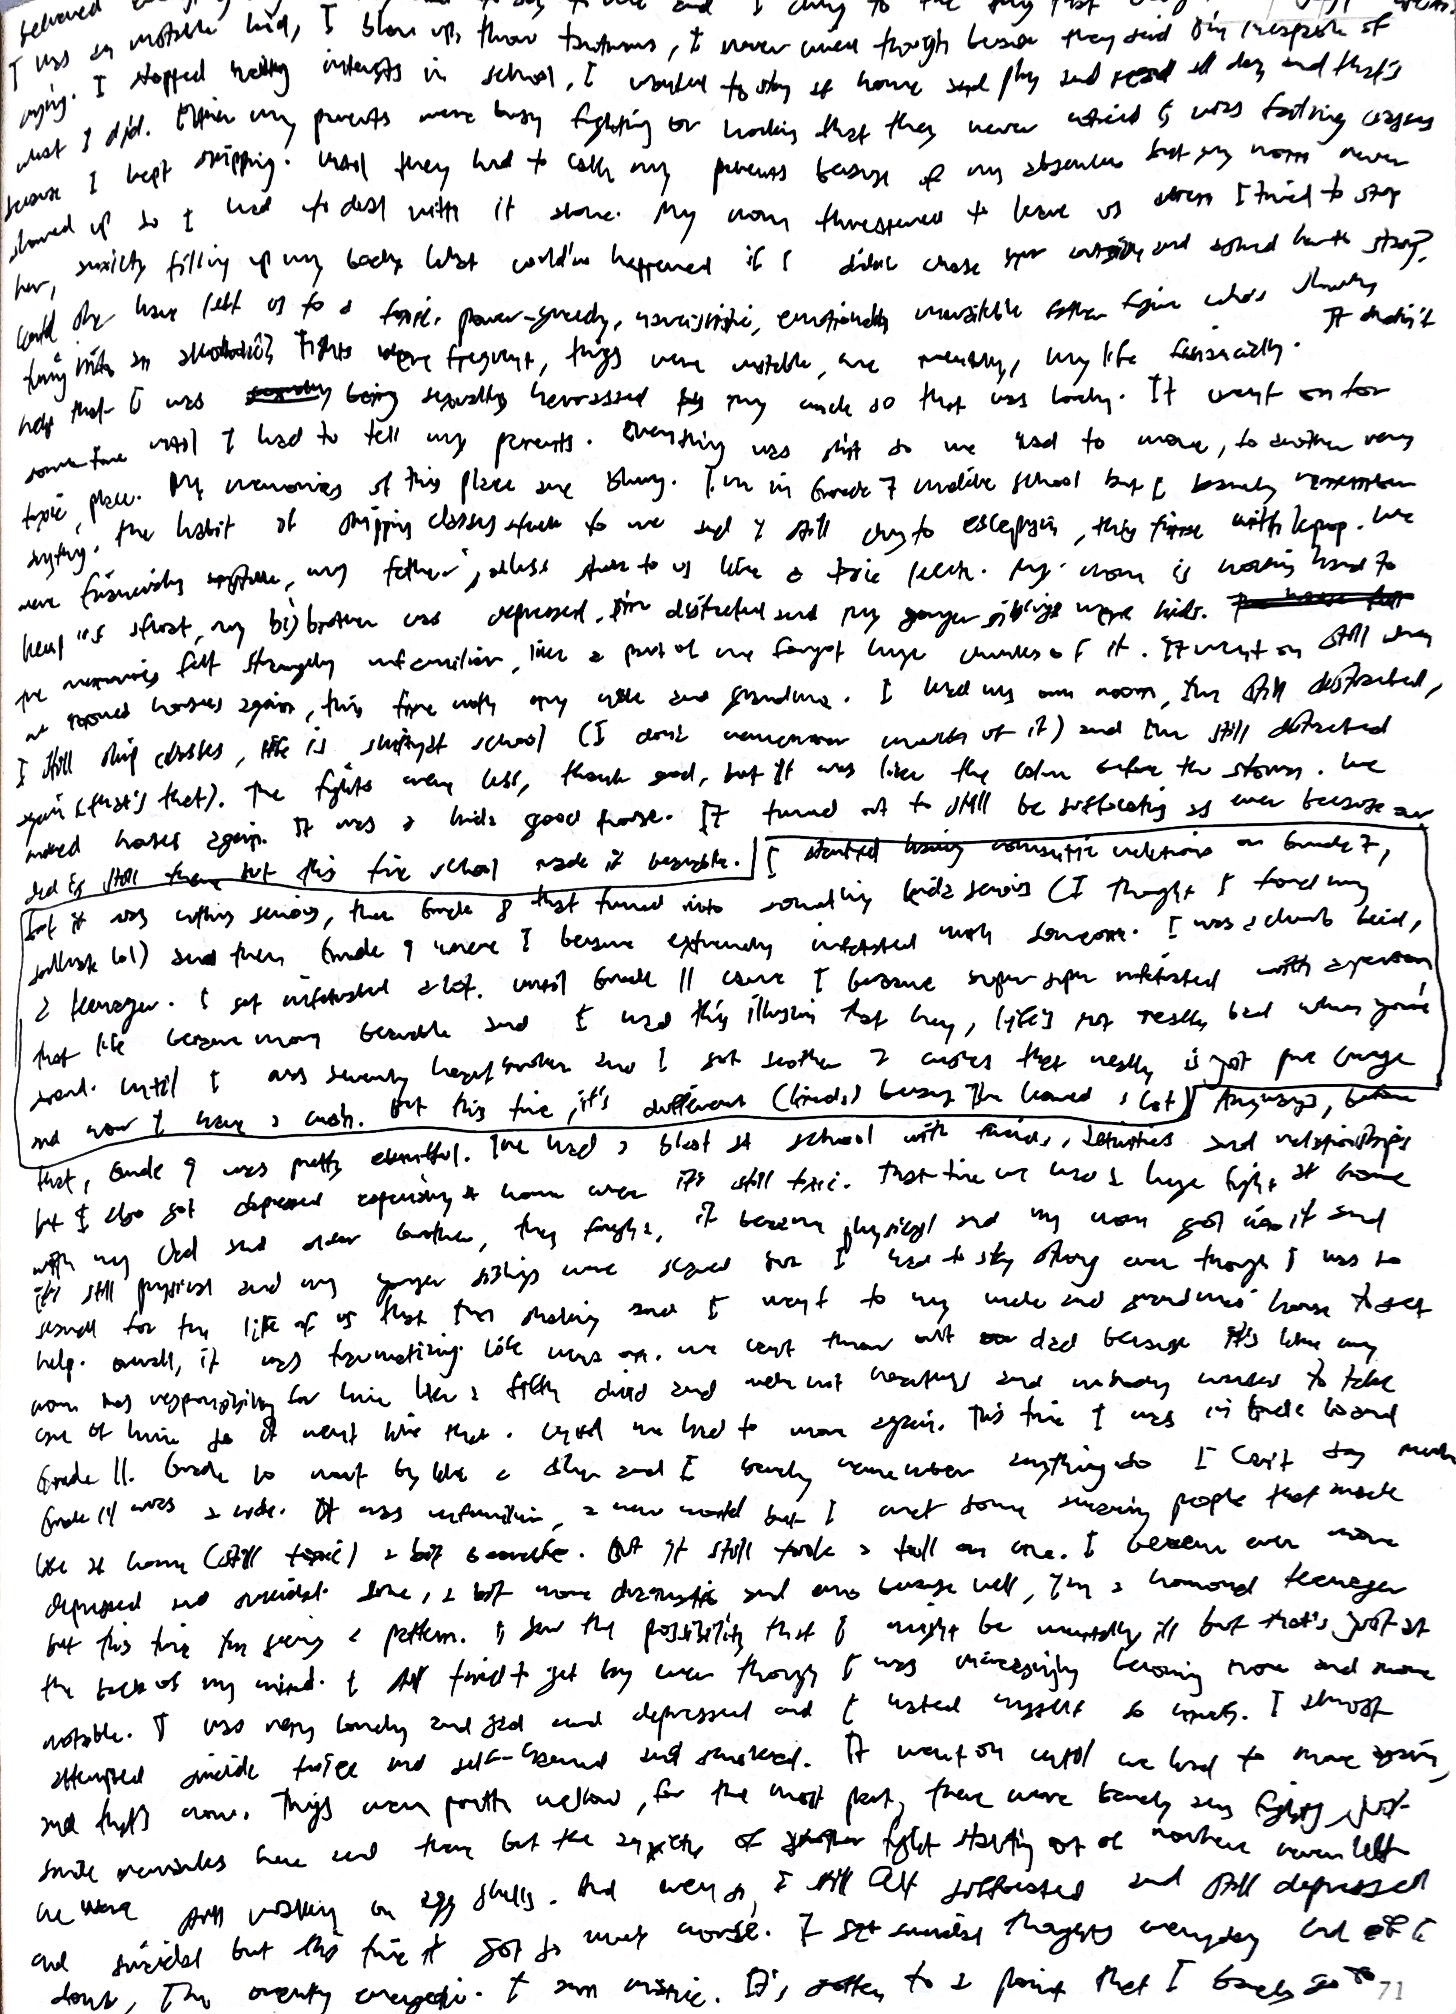 believed
I was an unstable kid, I blow ups, throw tantrums, I never cried though because they said I'm incapable of
crying. I stopped having interests in school, I wanted to stay at home and play and read all day and that's
what I did. my parents were busy fighting or working that they never noticed I was failing classes
because I kept skipping. Until they had to call my parents because of my absences but my mom never
showed up so I had to deal with it alone. My mom threatened to leave us I tried to stop
her, anxiety filling up my body. What could've happened if I didn't chase her outside and
could she have left us to a toxic, power-greedy, narcissistic, emotionally unavailable father figure who's slowly
turning into an alcoholic. Fights were frequent, things were unstable, me mentally, my life financially. It didn't
help that I was being sexually harrassed by my uncle so that was lovely. It went on for
some time until I had to tell my parents. Everything was shit so we had to move, to another very
toxic place. My memories of this place are blurry. I'm in Grade 7 school but I barely remember
anything. The habit of skipping classes stuck to me and I still cling to escapism, this time with kpop. We
were financially my father's stuck to us like a leech. My mom is working hard to
keep us afloat, my big brother was depressed, I'm distracted and my younger siblings were kids.
The memories felt strangely unfamiliar, like a part of me forgot huge chunks of it. It went on still when
we moved houses again, this time with my uncle and grandma. I had my own room, I'm still distracted,
I still skip classes, life is school (I don't remember much of it) and I'm still distracted
again (that's that). The fights were less, thank god, but it was like the calm before the storm. We
moved houses again. It was a kinda good house. It turned out to still be suffocating as ever because our
dad is still there but this time school made it bearable. I started having romantic relations on Grade 7,
but it was nothing serious, then Grade 8 that turned into something kinda serious (I thought I found my
soulmate lol) and then Grade 9 where I became extremely infatuated with someone. I was a dumb kid,
a teenager. I got infatuated a lot. Until Grade 11 came I became super super infatuated with a person
that life became more bearable and I had this illusion that hey, life's not really bad when you're
Until I was severely heartbroken and I got another 2 crushes that really is just pure
and now I have a crush. But this time, it's different (kinda) because I've learned a lot) Anyways, before
that, Grade 9 was pretty eventful. I've had a blast at school with friends, activities and relationships
but I also got depressed especially at home where it's still toxic. That time we had a huge fight at home
with my dad and older brother, they fought, it became physical and my mom got into it and
it's still physical and my younger siblings were scared but I had to stay strong even though I was so
scared for the life of us that I'm shaking and I went to my uncle and grandmas' house to get
help. Overall, it was traumatizing. Life went on. We can't throw out dad because it's like my
mom has responsibility for him like a filthy child and nobody wanted to take
care of him so it went like that. Until we had to move again. This time I was in Grade 10 and
Grade 11. Grade 10 went by like a and I barely remember anything so I can't say much
Grade 11 was a ride. It was unfamiliar, a new world but I met some amazing people that made
life at home (still toxic) a bit bearable. But it still took a toll on me. I became even more
depressed and suicidal. Sure, a bit more dramatic and emo because well, I'm a hormonal teenager
but this time I'm seeing a pattern. I saw the possibility that I might be mentally ill but that's just at
the back of my mind. I still tried to get by even though I was increasingly becoming more and more
unstable. I was very lonely and sad and depressed and I hated myself so much. I almost
attempted suicide twice and self-harmed and It went on until we had to move again,
and that's now. Things were pretty mellow, for the most part, there were barely any fights, just
small here and there but the anxiety of another fight starting out of nowhere never left
we were still walking on egg shells. And even so, I still felt suffocated and still depressed
and suicidal but this time it got so much worse. I get suicidal thoughts everyday and if I
don't, I'm I'm overly energetic. It's gotten to a point that I barely go to
71